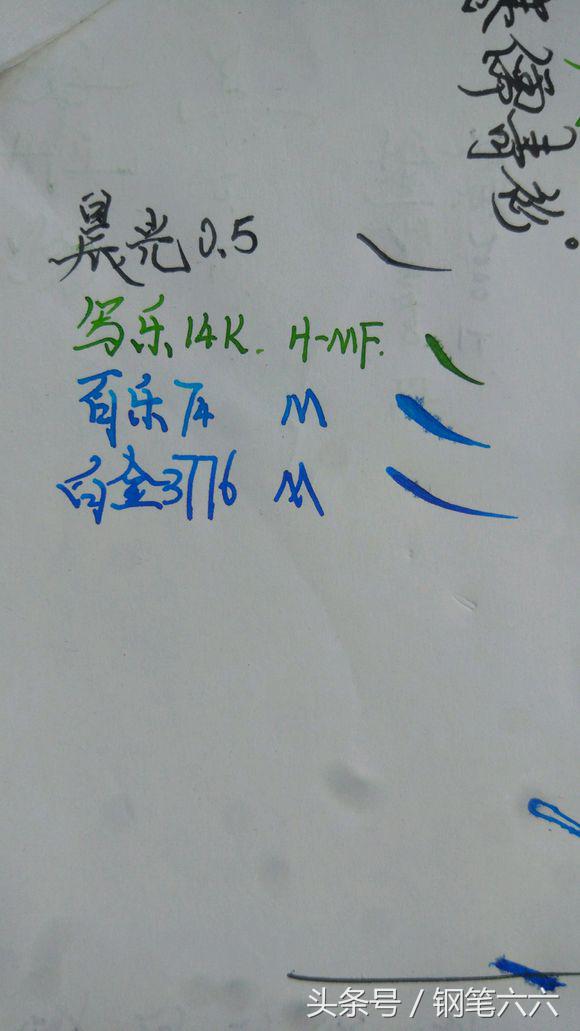 晨光 0.5
写乐14K. H-MF.
百乐74 M
白金3776 M
头条号 / 钢笔六六